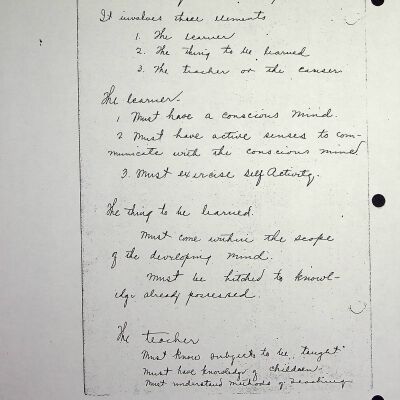 It involves these elements
1. The learner
2. The thing to be learned
3. The teacher or the causer
The learner.
1 Must have a conscious mind.
2 Must have active senses to com-
municate with the conscious mind
3. Must exercise self Activity.
The thing to be learned.
Must come within the scope
of the developing mind.
Must be hitched to knowl-
edge already possessed.
The teacher
Must know subjects to be "taught"
Must have knowledge of children
Must understand methods of teaching